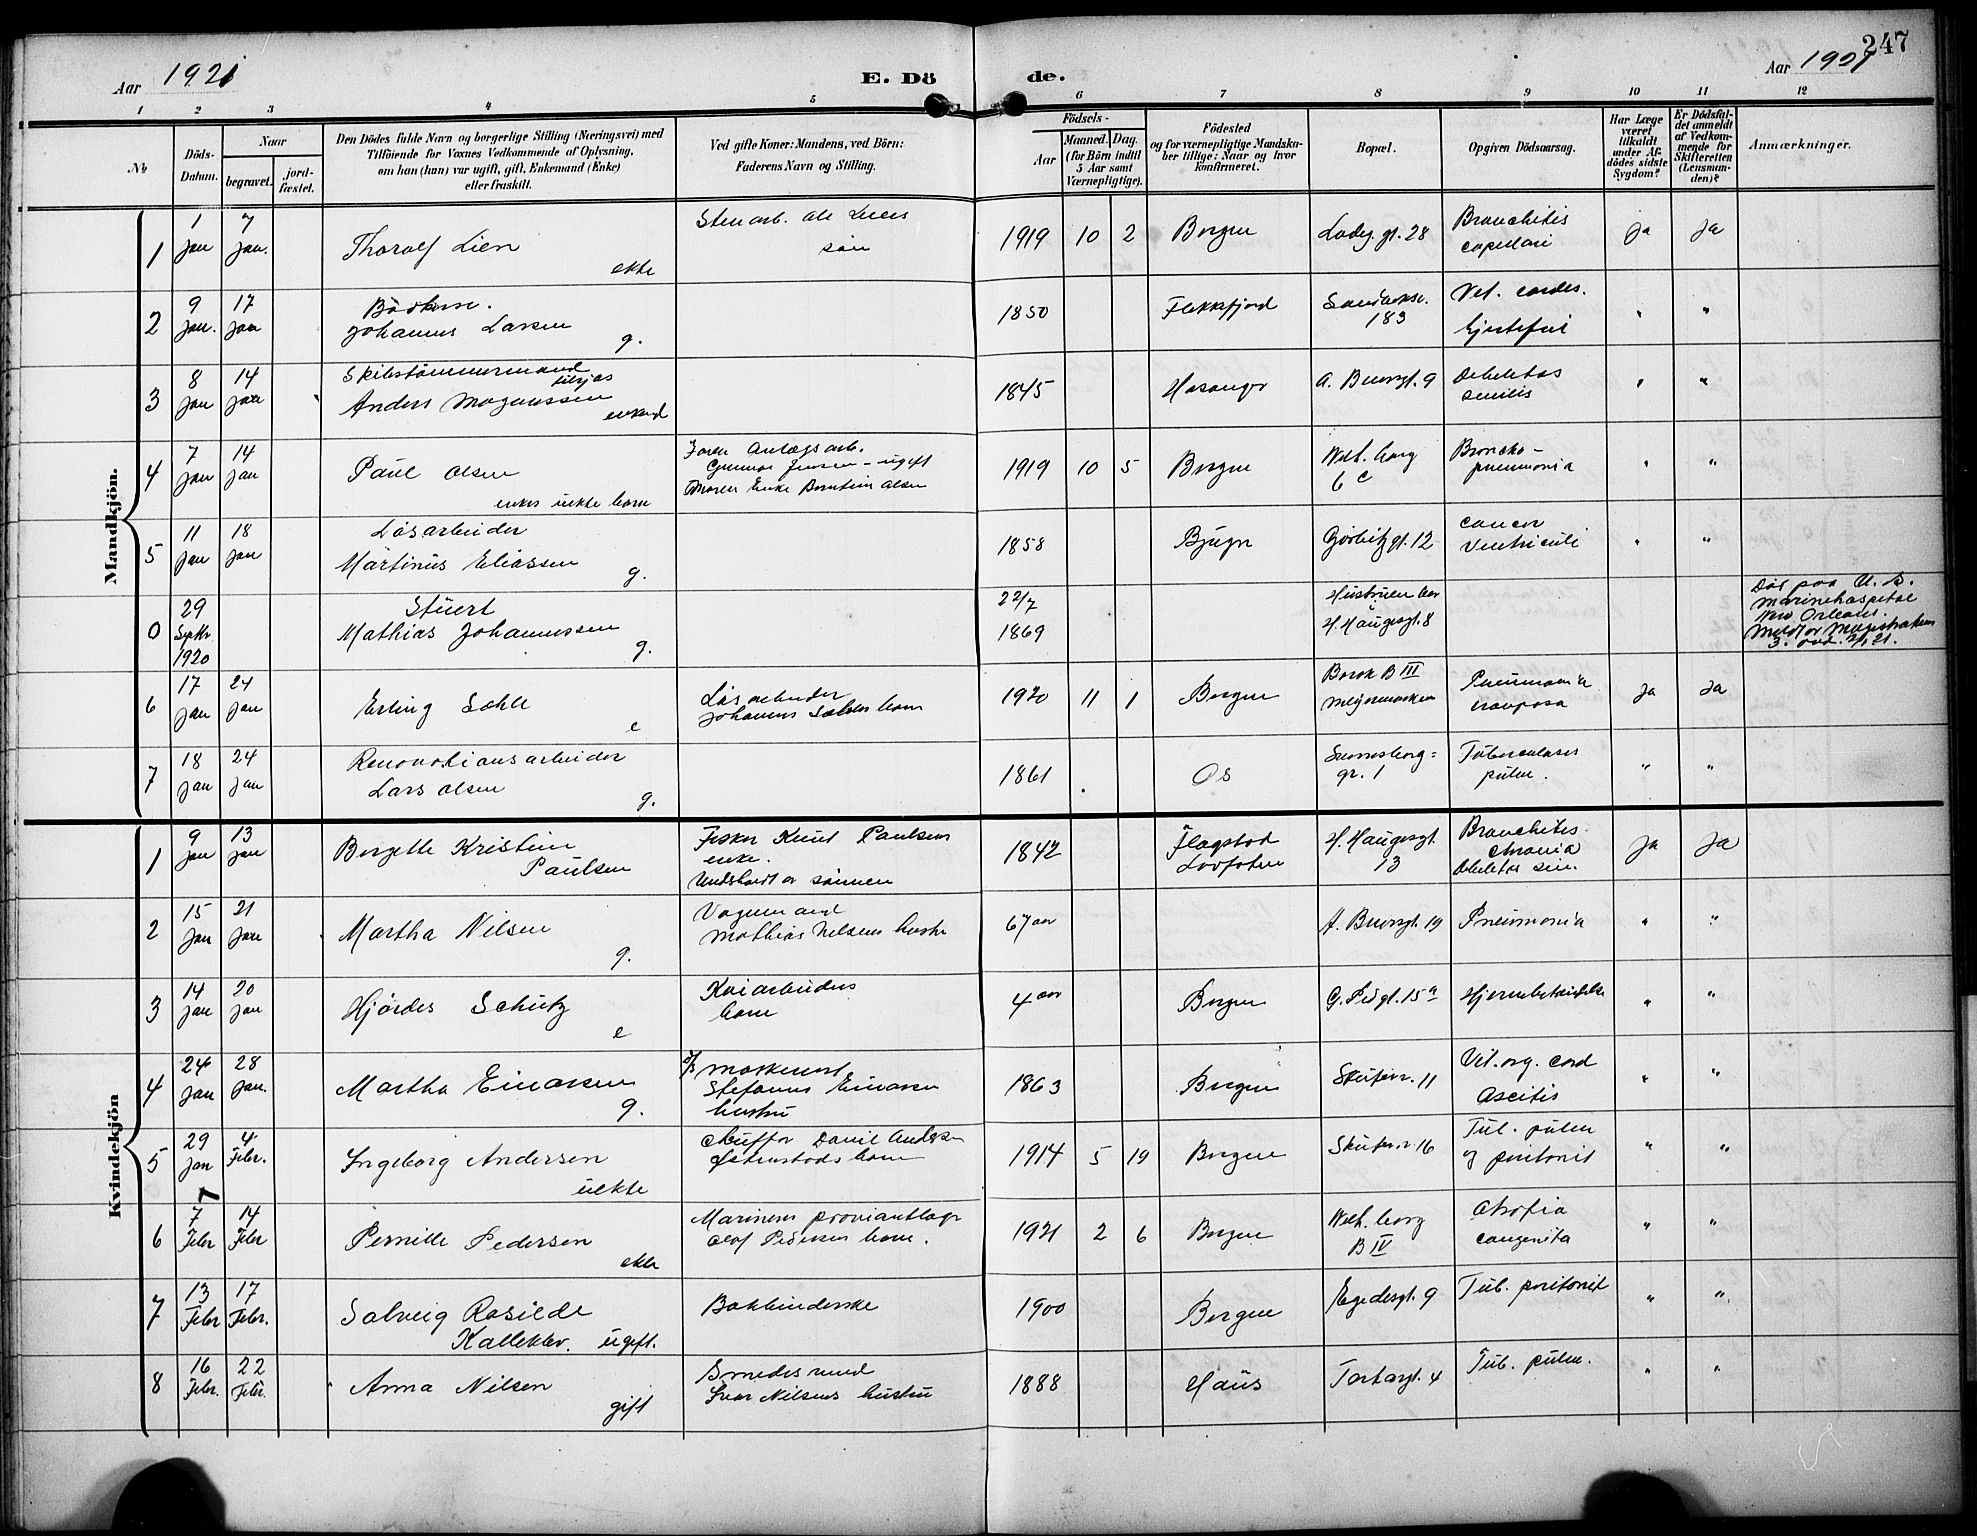 247
Aar 1921
E. Döde.
Aar 1921
1 2 3 4 5 6 7 8 9 10 11 12
No
Döds-Datum.
Naar
begravet.
jord-fæstet.
Den Dödes fulde Navn og borgerlige Stilling (Næringsvei) med
Tilföiende for Voxnes Vedkommende af Oplysning,
om han (hun) var ugift, gift, Enkemand (Enke)
eller fraskilt.
Ved gifte Koner: Mandens, ved Börn:
Faderens Navn og Stilling.
Födsels-
Aar
Maaned. Dag.
(for Börn indtil
5 Aar samt
Værnepligtige).
Födested
og for værnepligtige Mandska-
ber tillige: Naar og hvor
konfirmeret.
Bopæl.
Opgiven Dödsaarsag.
Har Læge
været
tilkaldt
under Af-
dödes sidste
Sygdom?
Er Dödsfal-
det anmeldt
af Vedkom-
mende for
Skifteretten
(Lensman-
den)?
Anmærkninger.
Mandkjön.
1
1 Jan
7 Jan.
Thorolf Lien
ekte
Stenarb. Ole Liens
sön
1919 10 2
Bergen
Ladeg. gt. 28
Bronchitis
capillari
ja
ja
2
9 Jan.
17 Jan
Bödker.
Johannes Larsen
g.
1850
Flekkefjord
Sandviksv.
183
Vit. cordis.
"
"
3
8 Jan
14 Jan
Skibstömmermand
Anders Magnussen
enkemd
1845
Hosanger
A. Buersgt. 9
Debilitas
senilis
"
"
4
7 Jan
14 Jan
Paul Olsen
enkes uekte barn
Faren Anlægsarb.
Gunnar Jensen - ugift
Moren Enke Berntine Olsen
1919 10 5
Bergen
Welh. borg
6 c
Broncho-
pneumonia
"
"
5
11 Jan
18 Jan
Lösarbeider
Martinus Eliassen
g.
1858
Bjugn
Görbitzgt. 12
Cancer
Ventriculi
"
"
0
29
Septbr
1920
Stuert
Mathias Johannessen
g.
22/7
1869
Hustruen bor
H. Haugesgt. 8
Död paa U. S.
Marinehospital
New Orleans.
Meldt av Magistraten
6
17 Jan
24 Jan
Erling Sæhle
e
Lösarbeider
Johannes Sæhles barn
1920 11 1
Bergen
Barak B III
Pneumonia
crouposa
ja
ja
7
18 Jan
24 Jan
Renovationsarbeider
Lars Olsen
g.
1861
Os
Sverresborg=
gt. 1
Tuberculoses
pulm.
"
"
Kvindekjön
1
9 Jan
13 Jan
Bergette Kristine
Paulsen
Fisker Knut Paulsens
enke.
Underholdt av sönnen
1842
Flagstad
Lofoten
H. Haugesgt.
13
Bronchites
chronia
Debilitas sen.
ja
ja
2
15 Jan
21 Jan
Martha Nilsen
g.
Vognmand
Mathias Nilsens hustr
67 aar
A. Buersgt. 19
Pneumonia
"
"
3
14 Jan
20 Jan
Hjördes Schutz
e
Kaiarbeiders
barn
4 aar
Bergen
G. Pedgt. 15a
"
"
4
24 Jan
28 Jan.
Martha Einarsen
g.
d/s Maskinist
Stefanus Einarsen
hustru
1863
Bergen
Skutevv. 11
Vit. org. cord
Ascitis
"
"
5
29 Jan
4 Febr.
Ingeborg Andersen
uekte
Chauffør Daniel Andersen
1914 5 19
Bergen
Skutevv. 16
Tub. pulm
og peritonit
"
"
6
7 Febr
14 Febr
Pernille Pedersen
ekte
Marinens proviantlager
Olaf Pedersens barn.
1921 2 6
Bergen
Welh. borg
B IV
Atrofia
congenita
"
"
7
13 Febr
17 Febr.
Solveig Rosilde
Kalleklev. ugift.
Bokbinderske
1900
Bergen
Egedesgt. 9
Tub. peritonit
"
"
8
16 Febr.
22 Febr.
Anna Nilsen
gift
Smedesvend
Ivar Nilsens hustru
1888
Haus
Tartargt. 4
Tub. pulm.
"
"